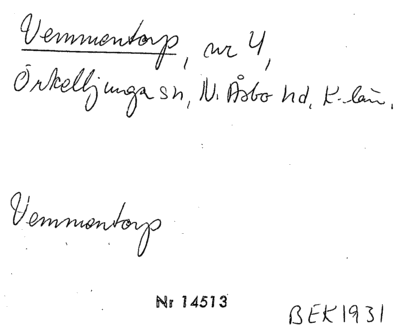 Vemmentorp, nr 4,
Örkelljunga sn, N. Åsbo hd, K-län.
Vemmentorp
Nr 14513
BEK1931